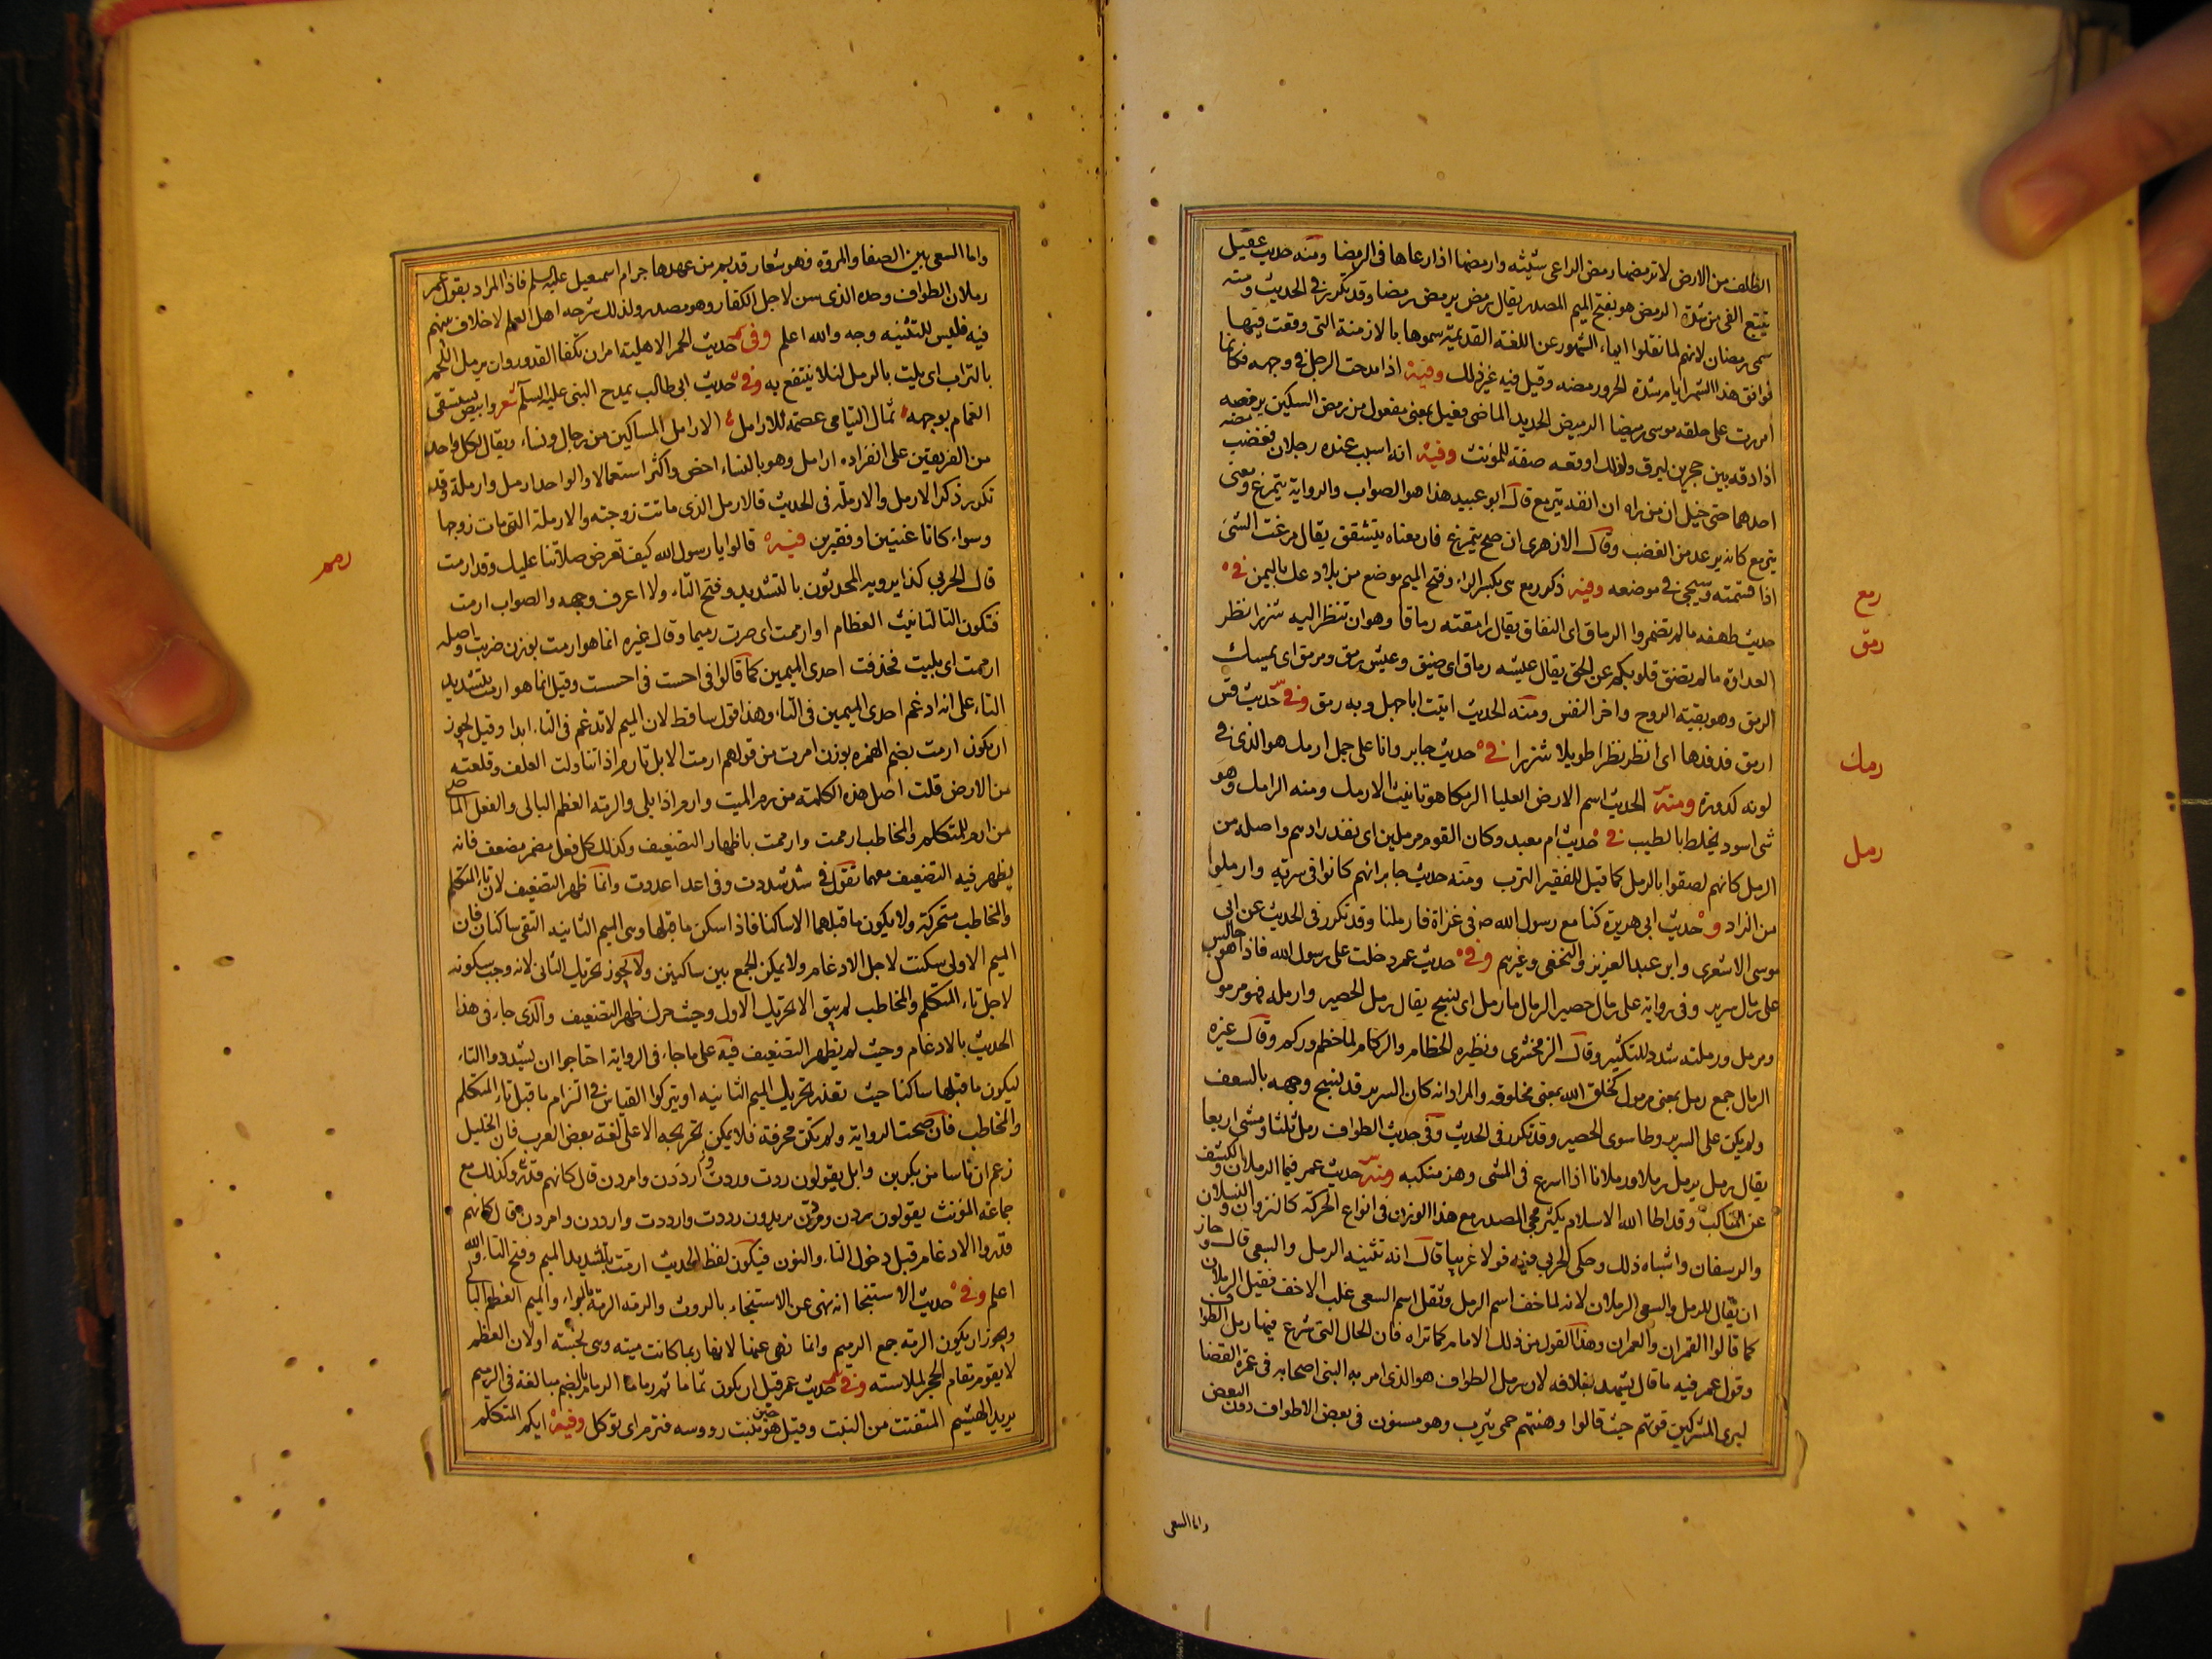 الظلف من الارض لا ترمضها رمض الراعى ماشيته وارمضها اذا رعاها فى الرمضا ومنه حديث عقيل
يتتبع الفى من شدة الرمض هو بفتح الميم المصدر يقال رمض يرمض رمضا وقد تكرر فى الحديث ومنه
سمى رمضان لانهم لما نقلوا اسماء الشهور عن اللغة القديمة سموها بالازمنة التى وقعت فيها
فوافق هذا الشهر ايام شدة الحر ورمضه وقيل فيه غير ذلك وفيه اذا مدحت الرجل فى وجهه فكانما
امررت على حلقه موسى رميضا الرميض الحديد الماضى فعيل بمعنى مفعول من رمض السكين يرمضه
اذا دقه بين حجرين ليرق ولذلك اوقعه صفة للمؤنث وفيه انه استب عنده رجلان فغضب
احدهما حتى خيل ان من راه ان انفه يترمع قال ابو عبيد هذا هو الصواب والرواية يتمزع ومعنى
يترمع كانه يرعد من الغضب وقال الازهرى ان صح يتمزع فان معناه يتشقق يقال مزعت الشئ
اذا قسمته وسيجى فى موضعه وفيه ذكر رمع هى بكسر الراء وفتح الميم موضع من بلاد عك باليمن فى
رمع
حديث طهفه ما لم تضمروا الرماق اى النفاق يقال رامقته رماقا وهو ان تنظر اليه شزرا نظر
رمق
العداوة ما لم تضق قلوبكم عن الحق يقال عيشه رماق اى ضيق وعيش رمق ومرمق اى يمسك
الرمق وهو بقية الروح واخر النفس ومنه الحديث اتيت ابا جهل وبه رمق وفى حديث قس
ارمق فدفدها اى انظر نظرا طويلا شزرا فى حديث جابر وانا على جمل ارمك هو الذى فى
رمك
لونه كدورة ومنه الحديث اسم الارض العليا الرمكا هو تانيث الارمك ومنه الرامك وهو
شى اسود يخلط بالطيب فى حديث ام معبد وكان القوم مرملين اى نفد زادهم واصله من
رمل
الرمل كانهم لصقوا بالرمل كما قيل للفقير الترب ومنه حديث جابر انهم كانوا فى سرية وارملوا
من الزاد و حديث ابى هريرة كنا مع رسول الله ص فى غزاة فارملنا وقد تكرر فى الحديث عن ابى
موسى الاشعرى وابن عبد العزيز والنخعى وغيرهم وفى حديث عمر دخلت على رسول الله فاذا هو جالس
على رمال سرير وفى رواية على رمال حصير الرمال ما رمل اى نسج يقال رمل الحصير وارمله فهو مرمول
ومرمل ورملته شدد للتكثير وقال الزمخشرى ونظيره الحطام والركام لما حطم وركم وقال غيره
الرمال جمع رمل بمعنى مرمول كخلق الله بمعنى مخلوقه والمراد انه كان السرير قد نسج وجهه بالسعف
ولم يكن على السرير وطا سوى الحصير وقد تكرر فى الحديث وفى حديث الطواف رمل ثلثا ومشى اربعا
يقال رمل يرمل رملا ورملانا اذا اسرع فى المشى وهز منكبيه ومنه حديث عمر فيما الرملان والكشف
عن المناكب وقد اطا الله الاسلام يكثر مجى المصدر مع هذا الوزن فى انواع الحركة كالنزوان والنسلان
والرسفان واشباه ذلك وحكى الحربى فيه قولا غريبا قال انه تثنية الرمل والسعى قال وجاز
ان يقال للرمل والسعى الرملان لانه لما خف اسم الرمل وثقل اسم السعى غلب الاخف فقيل الرملان
كما قالوا القمران والعمران وهذا القول من ذلك الامام كما تراه فان الحال التى شرع فيها رمل الطواف
وقول عمر فيه ما قال يشهد بخلافه لان رمل الطواف هو الذى امر به النبى اصحابه فى عمرة القضا
ليرى المشركين قوتهم حيث قالوا وهنتهم حمى يثرب وهو مسنون فى بعض الاطواف دون البعض
واما السعى
واما السعى بين الصفا والمروه فهو شعار قديم من عهد هاجر ام اسمعيل عليه السلم فاذا المراد بقول عمر
رملان الطواف وحده الذى سن لاجل الكفار وهو مصدر ولذلك شرحه اهل العلم لا خلاف بينهم
فيه فليس للتثنيه وجه والله اعلم وفى حديث الحمر الاهلية امر ان تكفا القدور وان يرمل اللحم
بالتراب اى يلت بالرمل لئلا ينتفع به وفى حديث ابى طالب يمدح النبى عليه السلم شعر وابيض يستسقى
الغمام بوجهه ثمال اليتامى عصمة للارامل الارامل المساكين من رجال ونساء ويقال لكل واحد
من الفريقين على انفراده ارامل وهو بالنساء اخص واكثر استعمالا والواحد ارمل وارملة وقد
تكرر ذكر الارمل والارملة فى الحديث فالارمل الذى ماتت زوجته والارملة التى مات زوجها
وسواء كانا غنيين او فقيرين فيه قالوا يا رسول الله كيف تعرض صلاتنا عليك وقد ارمت
رمم
قال الحربى كذا يرويه المحدثون بالتشديد وفتح التاء ولا اعرف وجهه والصواب ارمت
فتكون التا لتانيث العظام او ارممت اى صرت رميما وقال غيره انما هو ارمت بوزن ضربت اصله
ارممت اى بليت فحذفت احدى الميمين كما قالوا فى احست فى احسست وقيل انما هو ارمت بتشديد
التاء على انه ادغم احدى الميمين فى التاء وهذا قول ساقط لان الميم لا تدغم فى التاء ابدا وقيل يجوز
ان يكون ارمت بضم الهمزه بوزن امرت من قولهم ارمت الابل تارم اذا تناولت العلف وقلعته
من الارض قلت اصل هذه الكلمة من رم الميت وارم اذا بلى والرمة العظم البالى والفعل الماضى
من ارم للمتكلم والمخاطب ارممت وارممت باظهار التضعيف وكذلك كل فعل مضمر مضعف فانه
يظهر فيه التضعيف معهما تقول فى شد شددت وفى اعد اعددت وانما ظهر التضعيف لان تاء المتكلم
والمخاطب متحركة ولا يكون ما قبلهما الا ساكنا فاذا سكن ما قبلها وهى الميم الثانيه التقى ساكنان فان
الميم الاولى سكنت لاجل الادغام ولا يمكن الجمع بين ساكنين ولا يجوز تحريك الثانى لانه وجب سكونه
لاجل تاء المتكلم والمخاطب لم يبق الا تحريك الاول وحيث حرك ظهر التضعيف والذى جاء فى هذا
الحديث بالادغام وحيث لم يظهر التضعيف فيه على ما جاء فى الرواية احتاجوا ان يشددوا التاء
ليكون ما قبلها ساكنا حيث تعذر تحريك الميم الثانيه او يتركوا القياس فى التزام ما قبل تاء المتكلم
والمخاطب فان صحت الرواية ولم يكن محرفة فلا يمكن تخريجه الا على لغة بعض العرب فان الخليل
زعم ان ناسا من بكر بن وائل يقولون ردت وردت وكذلك مع
جماعة المؤنث يقولون ردن ومرن يريدون رددت وارددت وارددن وامررن قال كانهم
قدروا الادغام قبل دخول التاء والنون فيكون لفظ الحديث ارمت بتشديد الميم وفتح التاء والله
اعلم وفى حديث الاستنجا انه نهى عن الاستنجاء بالروث والرمه الرمة والرميم العظم البالى
ويجوز ان يكون الرمة جمع الرميم وانما نهى عنها لانها ربما كانت ميتة وهى نجسة او لان العظم
لا يقوم مقام الحجر لملاسته وفى حديث عمر قبل ان يكون ثماما ثم رماما الرمام بالضم مبالغة فى الرميم
يريد الهشيم المتفتت من النبت وقيل هو حين تنبت رووسه فترم اى توكل وفيه ايكم المتكلم